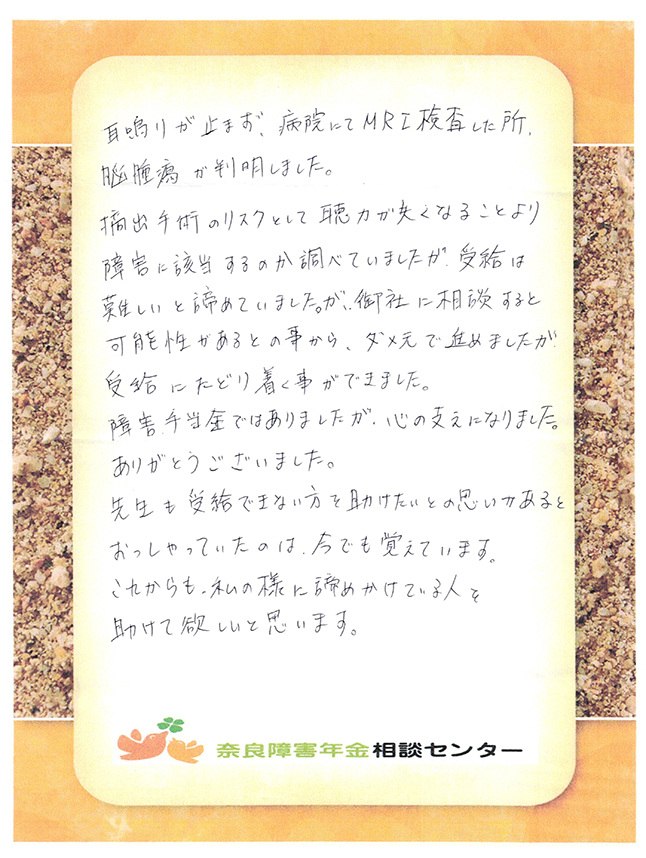 耳鳴りが止まず、病院にてMRI検査した所、
脳腫瘍が判明しました。
摘出手術のリスクとして聴力が失くなることより
障害に該当するのか調べていましたが、受給は
難しいと諦めていました。が、御社に相談すると
可能性があるとの事から、ダメ元で進めましたが
受給にたどり着く事ができました。
障害手当金ではありましたが、心の支えになりました。
ありがとうございました。
先生も受給できない方を助けたいとの思いがあると
おっしゃっていたのは、今でも覚えています。
これからも、私の様に諦めかけている人を
助けて欲しいと思います。
奈良障害年金相談センター